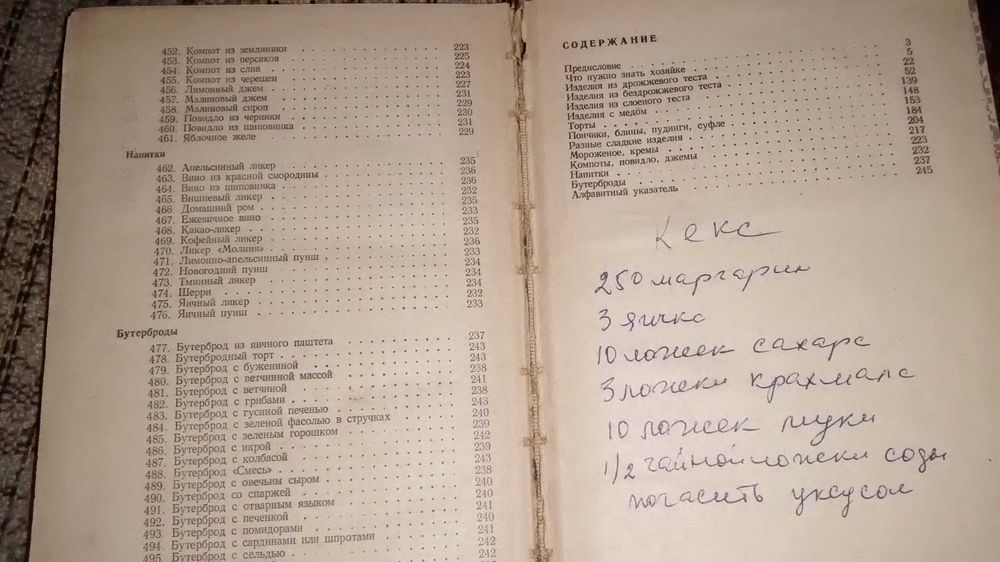 452. Компот из земляники 223
453. Компот из персиков 225
454. Компот из слив 224
455. Компот из черешен 223
456. Лимонный джем 227
457. Малиновый джем 231
458. Малиновый сироп 229
459. Повидло из черники 230
460. Повидло из шиповника 231
461. Яблочное желе 229
Напитки
462. Апельсинный ликер 235
463. Вино из красной смородины 236
464. Вино из шиповника 236
465. Вишневый ликер 232
466. Домашний ром 235
467. Ежевичное вино 233
468. Какао-ликер 235
469. Кофейный ликер 232
470. Ликер «Молния» 236
471. Лимонно-апельсинный пунш 233
472. Новогодний пунш 234
473. Тминный ликер 234
474. Шерри 234
475. Яичный ликер 232
476. Яичный пунш 233
Бутерброды
477. Бутерброд из яичного паштета 237
478. Бутербродный торт 243
479. Бутерброд с бужениной 243
480. Бутерброд с ветчинной массой 238
481. Бутерброд с ветчиной 241
482. Бутерброд с грибами 238
483. Бутерброд с гусиной печенью 243
484. Бутерброд с зеленой фасолью в стручках 240
485. Бутерброд с зеленым горошком 239
486. Бутерброд с икрой 242
487. Бутерброд с колбасой 239
488. Бутерброд «Смесь» 243
489. Бутерброд с овечьим сыром 238
490. Бутерброд со спаржей 240
491. Бутерброд с отварным языком 240
492. Бутерброд с печенкой 240
493. Бутерброд с помидорами 241
494. Бутерброд с сардинами или шпротами 242
495. Бутерброд с сельдью 242
СОДЕРЖАНИЕ
Предисловие 3
Что нужно знать хозяйке 5
Изделия из дрожжевого теста 22
Изделия из бездрожжевого теста 52
Изделия из слоеного теста 139
Изделия с медом 148
Торты 153
Пончики, блины, пудинги, суфле 184
Разные сладкие изделия 204
Мороженое, кремы 217
Компоты, повидло, джемы 223
Напитки 232
Бутерброды 237
Алфавитный указатель 245
Кекс
250 маргарин
3 яичка
10 ложек сахара
3 ложки крахмала
10 ложек муки
1/2 чайной ложки соды
погасить уксусом